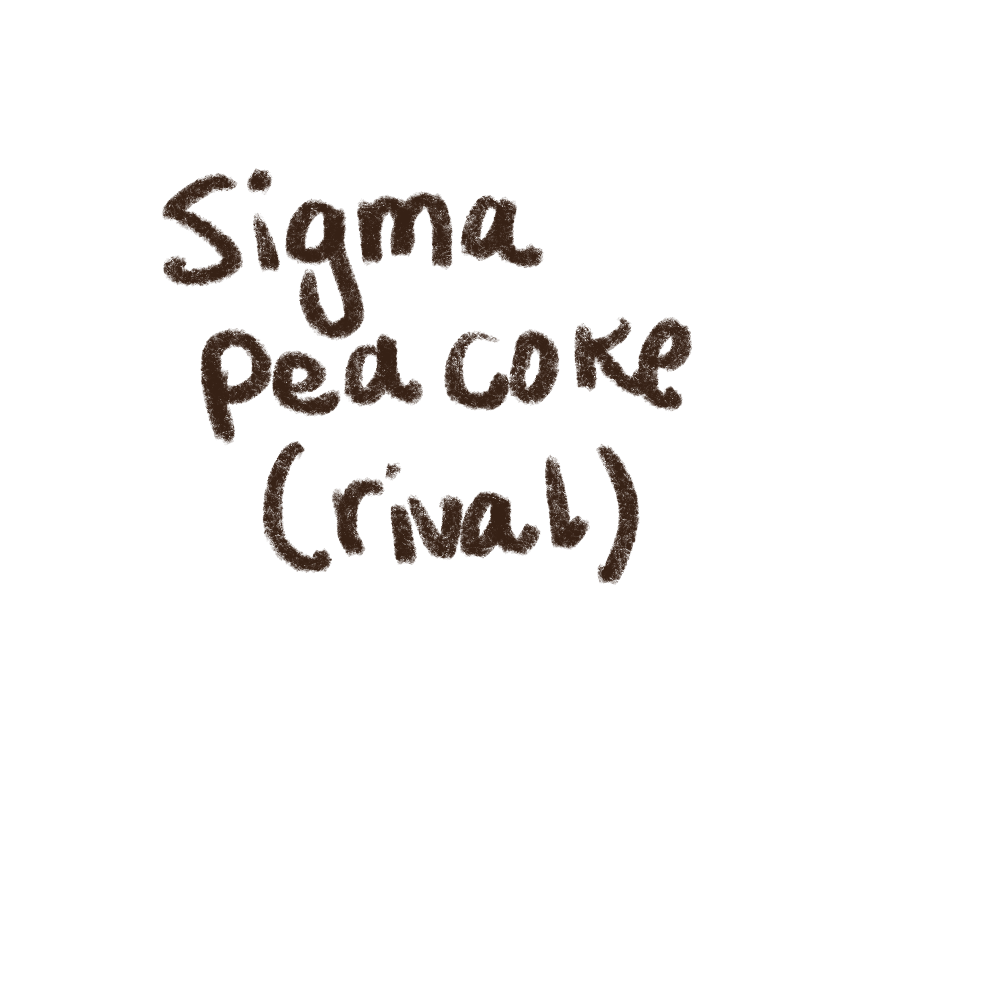 Sigma
pea coke
(rival)